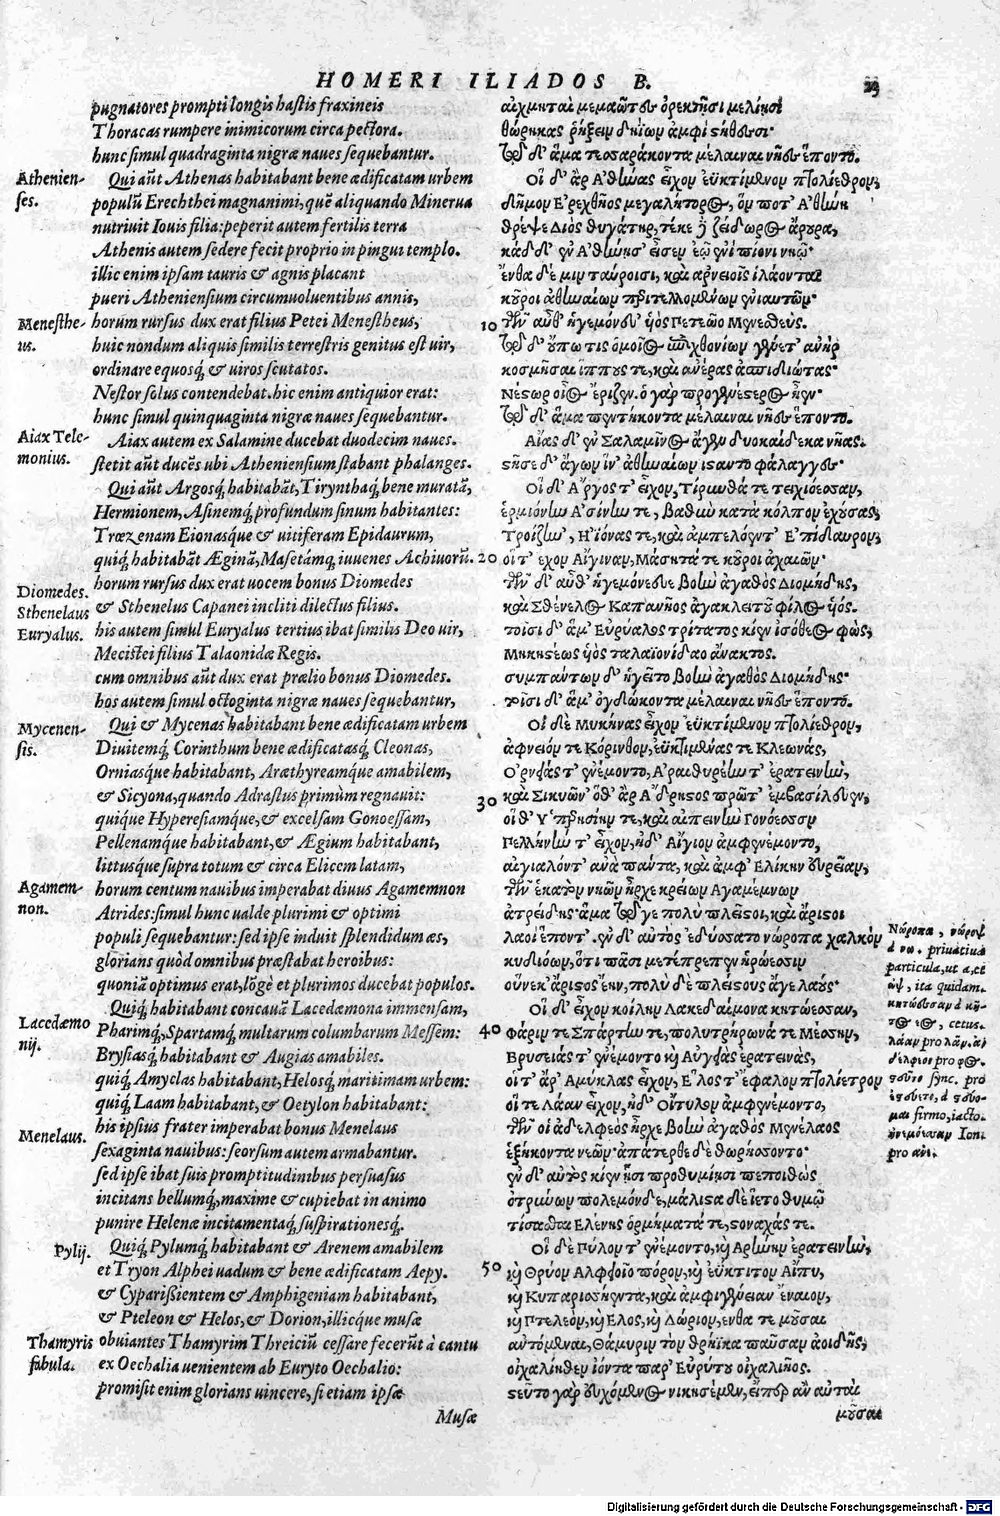 HOMERI ILIADOS B.
23
pugnatores prompti longis hastis fraxineis
Thoracas rumpere inimicorum circa pectora.
hunc simul quadraginta nigræ naues sequebantur.
Athenien-
ses.
Qui aūt Athenas habitabant bene ædificatam urbem
populū Erechthei magnanimi, quē aliquando Minerua
nutriuit Iouis filia: peperit autem fertilis terra
Athenis autem sedere fecit proprio in pingui templo.
illic enim ipsam tauris & agnis placant
pueri Atheniensium circumuoluentibus annis,
Menesthe-
us.
horum rursus dux erat filius Petei Menestheus,
huic nondum aliquis similis terrestris genitus est uir,
ordinare equosq́; & uiros scutatos.
Nestor solus contendebat. hic enim antiquior erat:
hunc simul quinquaginta nigræ naues sequebantur.
Aiax Tele-
monius.
Aiax autem ex Salamine ducebat duodecim naues.
stetit aūt ducēs ubi Atheniensium stabant phalanges.
Qui aūt Argosq́; habitabāt, Tirynthaq́; bene muratā,
Hermionem, Asinemq́; profundum sinum habitantes:
Trœzenam Eionasque & uitiferam Epidaurum,
quiq́; habitabāt Æginā, Masetámq; iuuenes Achiuorū.
Diomedes.
Sthenelaus
Euryalus.
horum rursus dux erat uocem bonus Diomedes
& Sthenelus Capanei incliti dilectus filius.
his autem simul Euryalus tertius ibat similis Deo uir,
Mecistei filius Talaonidæ Regis.
cum omnibus aūt dux erat prælio bonus Diomedes.
hos autem simul octoginta nigræ naues sequebantur,
Mycenen-
sis.
Qui & Mycenas habitabant bene ædificatam urbem
Diuitemq́; Corinthum bene ædificatasq́; Cleonas,
Orniasque habitabant, Aræthyreamque amabilem,
& Sicyona, quando Adrastus primùm regnauit:
quique Hyperesiamque, & excelsam Gonoessam,
Pellenamque habitabant, & Ægium habitabant,
littusque supra totum & circa Elicem latam,
Agamem-
non.
horum centum nauibus imperabat diuus Agamemnon
Atrides: simul hunc ualde plurimi & optimi
populi sequebantur: sed ipse induit splendidum æs,
glorians quòd omnibus præstabat heroibus:
quoniā optimus erat, lōgè et plurimos ducebat populos.
Lacedæmo
nij.
Quiq́; habitabant concauā Lacedæmona immensam,
Pharimq́;, Spartamq́; multarum columbarum Messem:
Brysiasq́; habitabant & Augias amabiles.
quiq́; Amyclas habitabant, Helosq́; maritimam urbem:
quiq́; Laam habitabant, & Oetylon habitabant:
Menelaus.
his ipsius frater imperabat bonus Menelaus
sexaginta nauibus: seorsum autem armabantur.
sed ipse ibat suis promptitudinibus persuasus
incitans bellumq́;, maxime & cupiebat in animo
punire Helenæ incitamentaq́; suspirationesq́;.
Pylij.
Quiq́; Pylumq́; habitabant & Arenem amabilem
et Tryon Alphei uadum & bene ædificatam Aepy.
& Cyparißientem & Amphigeniam habitabant,
& Pteleon & Helos, & Dorion, illicque musæ
Thamyris
fabula.
obuiantes Thamyrim Threiciū cessare fecerūt à cantu
ex Oechalia uenientem ab Euryto Oechalio:
promisit enim glorians uincere, si etiam ipsæ
Musæ
αἰχμηταὶ μεμαῶτες ὀρεκτῇσι μελίῃσι
θώρηκας ῥήξειν δηΐων ἀμφὶ στήθεσσι·
τῷ δ' ἅμα τεσσαράκοντα μέλαιναι νῆες ἕποντο.
Οἳ δ' ἂρ Ἀθήνας εἶχον ἐϋκτίμενον πτολίεθρον,
δῆμον Ἐρεχθῆος μεγαλήτορος, ὅν ποτ' Ἀθήνη
θρέψε Διὸς θυγάτηρ, τέκε δὲ ζείδωρος ἄρουρα,
κὰδ δ' ἐν Ἀθήνῃσ' εἷσεν ἑῷ ἐνὶ πίονι νηῷ·
ἔνθα δέ μιν ταύροισι, καὶ ἀρνειοῖς ἱλάονται
κοῦροι ἀθηναίων περιτελλομένων ἐνιαυτῶν·
10 τῶν αὖθ' ἡγεμόνευ' υἱὸς Πετεῶο Μενεσθεύς.
τῷ δ' οὔπω τις ὁμοῖος ἐπιχθονίων γένετ' ἀνὴρ
κοσμῆσαι ἵππους τε, καὶ ἀνέρας ἀσπιδιώτας·
Νέστωρ οἶος ἔριζεν. ὁ γὰρ προγενέστερος ἦεν·
τῷ δ' ἅμα πεντήκοντα μέλαιναι νῆες ἕποντο.
Αἴας δ' ἐν Σαλαμῖνος ἄγεν δυοκαίδεκα νῆας.
στῆσε δ' ἄγων ἵν' ἀθηναίων ἵσταντο φάλαγγες·
Οἳ δ' Ἄργος τ' εἶχον, Τίρυνθά τε τειχιόεσσαν,
ἑρμιόνην Ἀσίνην τε, βαθὺν κατὰ κόλπον ἐχούσας,
Τροίζην', Ἠϊόνας τε, καὶ ἀμπελόεντ' Ἐπίδαυρον,
20 οἵ τ' ἔχον Αἴγιναν, Μάσητά τε κοῦροι ἀχαιῶν·
τῶν δ' αὖθ' ἡγεμόνευε βοὴν ἀγαθὸς Διομήδης,
καὶ Σθένελος Καπανῆος ἀγακλειτοῦ φίλος υἱός.
τοῖσι δ' ἅμ' Εὐρύαλος τρίτατος κίεν ἰσόθεος φώς,
Μηκιστέως υἱὸς ταλαϊονίδαο ἄνακτος.
συμπάντων δ' ἡγεῖτο βοὴν ἀγαθὸς Διομήδης·
τοῖσι δ' ἅμ' ὀγδώκοντα μέλαιναι νῆες ἕποντο.
Οἳ δὲ Μυκήνας εἶχον ἐϋκτίμενον πτολίεθρον,
ἀφνειόν τε Κόρινθον, ἐϋκτιμένας τε Κλεωνάς,
Ὀρνειάς τ' ἐνέμοντο, Ἀραιθυρέην τ' ἐρατεινὴν,
30 καὶ Σικυῶν' ὅθ' ἂρ Ἄδρηστος πρῶτ' ἐμβασίλευεν,
οἵ θ' Ὑπερησίην τε, καὶ αἰπεινὴν Γονόεσσαν
Πελλήνην τ' εἶχον, ἠδ' Αἴγιον ἀμφενέμοντο,
αἰγιαλόντ' ἀνὰ πάντα, καὶ ἀμφ' Ἑλίκην εὐρεῖαν,
τῶν ἑκατὸν νηῶν ἦρχε κρείων Ἀγαμέμνων
ἀτρείδης· ἅμα τῷ γε πολὺ πλεῖστοι, καὶ ἄριστοι
λαοὶ ἕποντ'. ἐν δ' αὐτὸς ἐδύσατο νώροπα χαλκὸν
κυδιόων, ὅτι πᾶσι μετέπρεπεν ἡρώεσσιν
οὕνεκ' ἄριστος ἔην, πολὺ δὲ πλείστους ἄγε λαούς·
Οἳ δ' εἶχον κοίλην Λακεδαίμονα κητώεσσαν,
40 Φάριν τε Σπάρτην τε, πολυτρήρωνά τε Μέσσην,
Βρυσειάς τ' ἐνέμοντο καὶ Αὐγειὰς ἐρατεινάς,
οἵ τ' ἄρ' Ἀμύκλας εἶχον, Ἕλος τ' ἔφαλον πτολίετρον
οἵ τε Λάαν εἶχον, ἠδ' Οἴτυλον ἀμφενέμοντο,
τῶν οἱ ἀδελφεὸς ἦρχε βοὴν ἀγαθὸς Μενέλαος
ἑξήκοντα νεῶν· ἀπάτερθε δὲ θωρήσσοντο·
ἐν δ' αὐτὸς κίεν ᾗσι προθυμίῃσι πεποιθὼς
ὀτρύνων πόλεμόνδε, μάλιστα δὲ ἵετο θυμῷ
τίσασθαι Ἑλένης ὁρμήματά τε, στοναχάς τε.
Οἳ δὲ Πύλον τ' ἐνέμοντο, καὶ Ἀρήνην ἐρατεινὴν,
50 καὶ Θρύον Ἀλφειοῖο πόρον, καὶ ἐΰκτιτον Αἶπυ,
καὶ Κυπαρισσήεντα, καὶ ἀμφιγένειαν ἔναιον,
καὶ Πτελεὸν, καὶ Ἕλος, καὶ Δώριον, ἔνθα τε μοῦσαι
ἀντόμεναι, Θάμυριν τὸν θρήϊκα παῦσαν ἀοιδῆς,
οἰχαλίηθεν ἰόντα παρ' Εὐρύτου οἰχαλιῆος.
στεῦτο γὰρ εὐχόμενος νικησέμεν, εἴπερ ἂν αὐταὶ
μοῦσαι
Νώροπα, νώροψ
à νω. priuatiua
particula, ut α, et
ὤψ, ita quidam.
κητώεσσαν à κῆ-
τος, cetus.
λάαν pro λᾶν. ἀ-
δελφιος pro φος.
στεῦτο sync. pro
firmo, iacto.
Ion.
pro
Digitalisierung gefördert durch die Deutsche Forschungsgemeinschaft - DFG